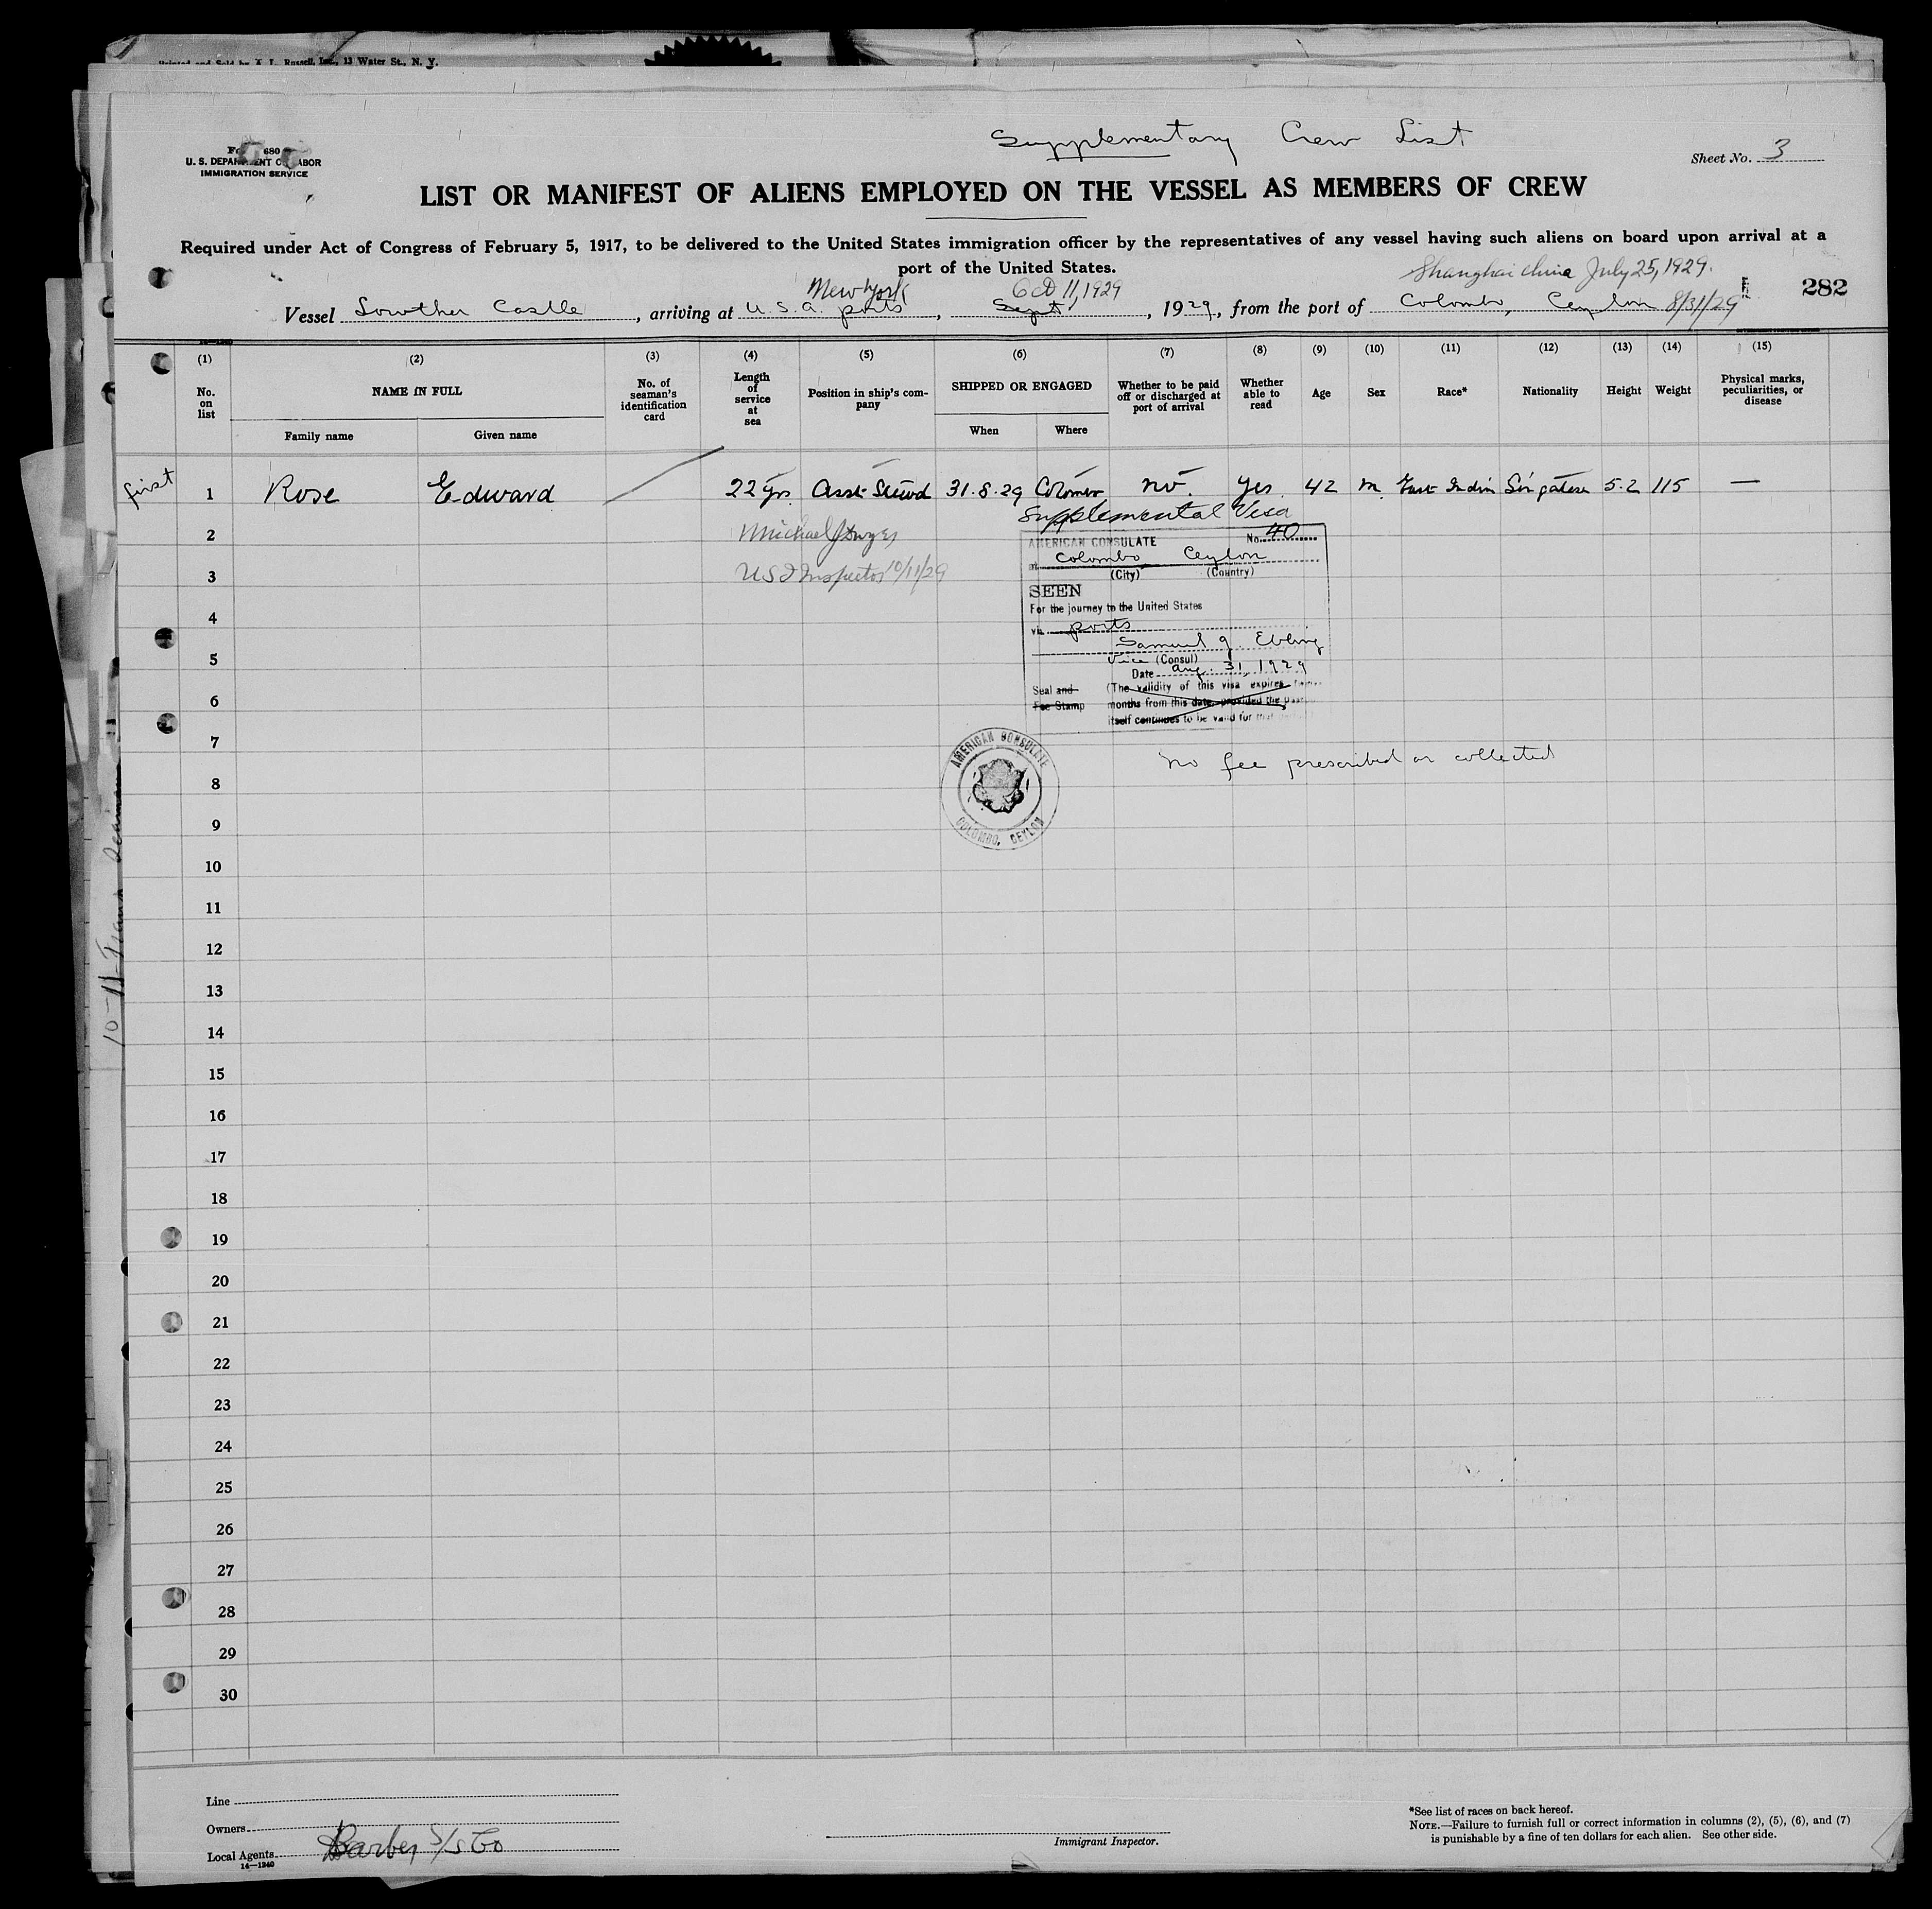 Printed and Sold by A. L. Russell, Inc., 13 Water St., N. Y.
Supplementary Crew List
680
U. S. DEPARTMENT OF LABOR
IMMIGRATION SERVICE
Sheet No. 3
LIST OR MANIFEST OF ALIENS EMPLOYED ON THE VESSEL AS MEMBERS OF CREW
Required under Act of Congress of February 5, 1917, to be delivered to the United States immigration officer by the representatives of any vessel having such aliens on board upon arrival at a
port of the United States.
Shanghai China July 25, 1929.
New York Oct 11, 1929
282
Vessel Lowther Castle, arriving at U. S. A. ports, Sept, 1929, from the port of Colombo, Ceylon 8/31/29
(1) (2) (3) (4) (5) (6) (7) (8) (9) (10) (11) (12) (13) (14) (15)
No. on list
NAME IN FULL
Family name
Given name
No. of seaman's identification card
Length of service at sea
Position in ship's company
SHIPPED OR ENGAGED
When
Where
Whether to be paid off or discharged at port of arrival
Whether able to read
Age
Sex
Race*
Nationality
Height
Weight
Physical marks, peculiarities, or disease
first 1 Rose Edward 22 yrs Asst Stewd 31.8.29 Colombo no. yes. 42 m. East Indin Singalese 5.2 115 —
Supplemental Visa
2 Michael J Dwyer
No. 40
AMERICAN CONSULATE
at Colombo Ceylon
(City) (Country)
3 U S I Inspector 10/11/29
SEEN
For the journey to the United States
4
via ports
Samuel G. Ebling
5
Vice (Consul)
Date Aug. 31, 1929
Seal and (The validity of this visa expires
6
Fee Stamp months from this date, provided the
itself continues to be valid for that
7
AMERICAN CONSULATE
COLOMBO, CEYLON
no fee prescribed or collected
8
9
10
11
12
13
14
15
16
17
18
19
20
21
22
23
24
25
26
27
28
29
30
Line
Owners
Local Agents Barber S/S Co
14—1240
Immigrant Inspector.
*See list of races on back hereof.
NOTE.—Failure to furnish full or correct information in columns (2), (5), (6), and (7)
is punishable by a fine of ten dollars for each alien. See other side.